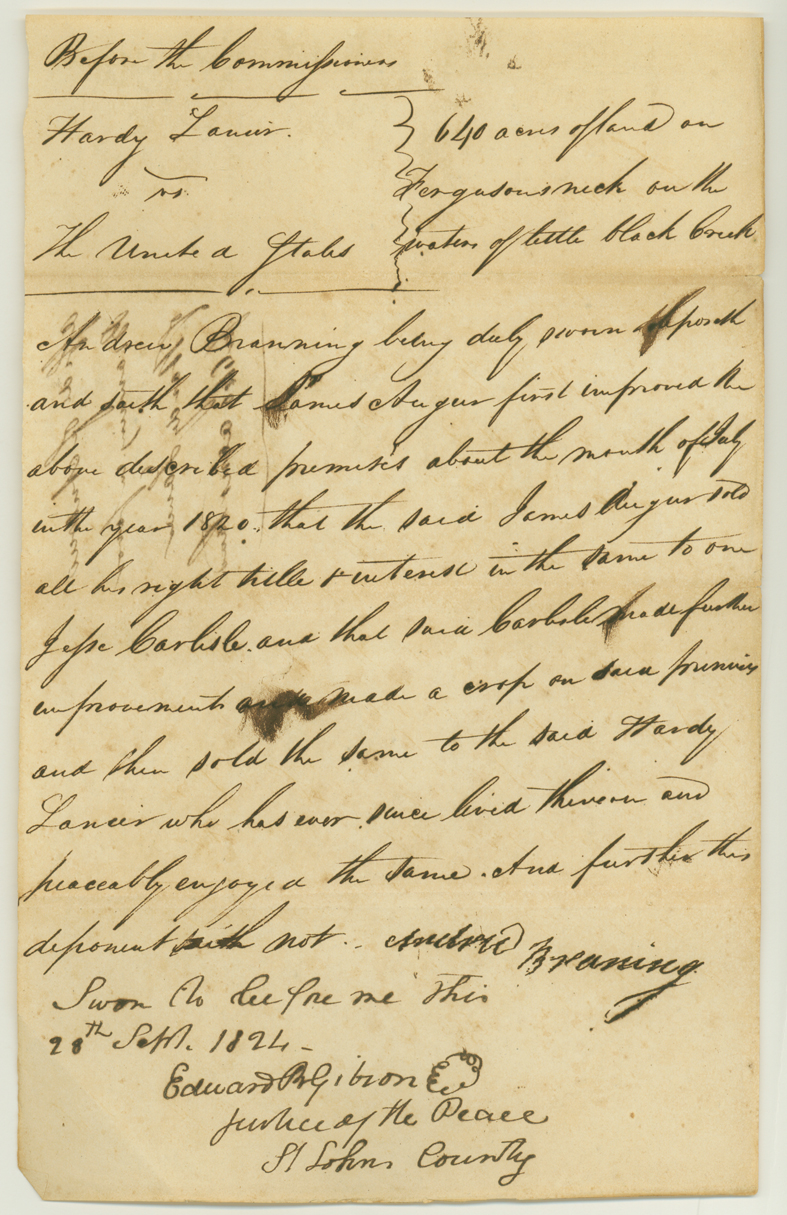 Before the Commissioners
Hardy Lanier. } 640 acres of land on
vs } Fergusons neck on the
The United States } waters of little black Creek
Andrew Branning being duly sworn deposeth
and saith that James Augur first improved the
above described premises about the month of July
in the year 1820. that the said James Augur sold
all his right title & interest in the same to one
Jesse Carlisle. and that said Carlisle made further
improvements made a crop on said premises
and then sold the same to the said Hardy
Lanier who has ever since lived thereon and
peaceably enjoyed the same. And further this
deponent saith not. Andrew Braning
Sworn to before me this
28th Sept. 1824 -
Edward R Gibson
Justice of the Peace
St Johns County